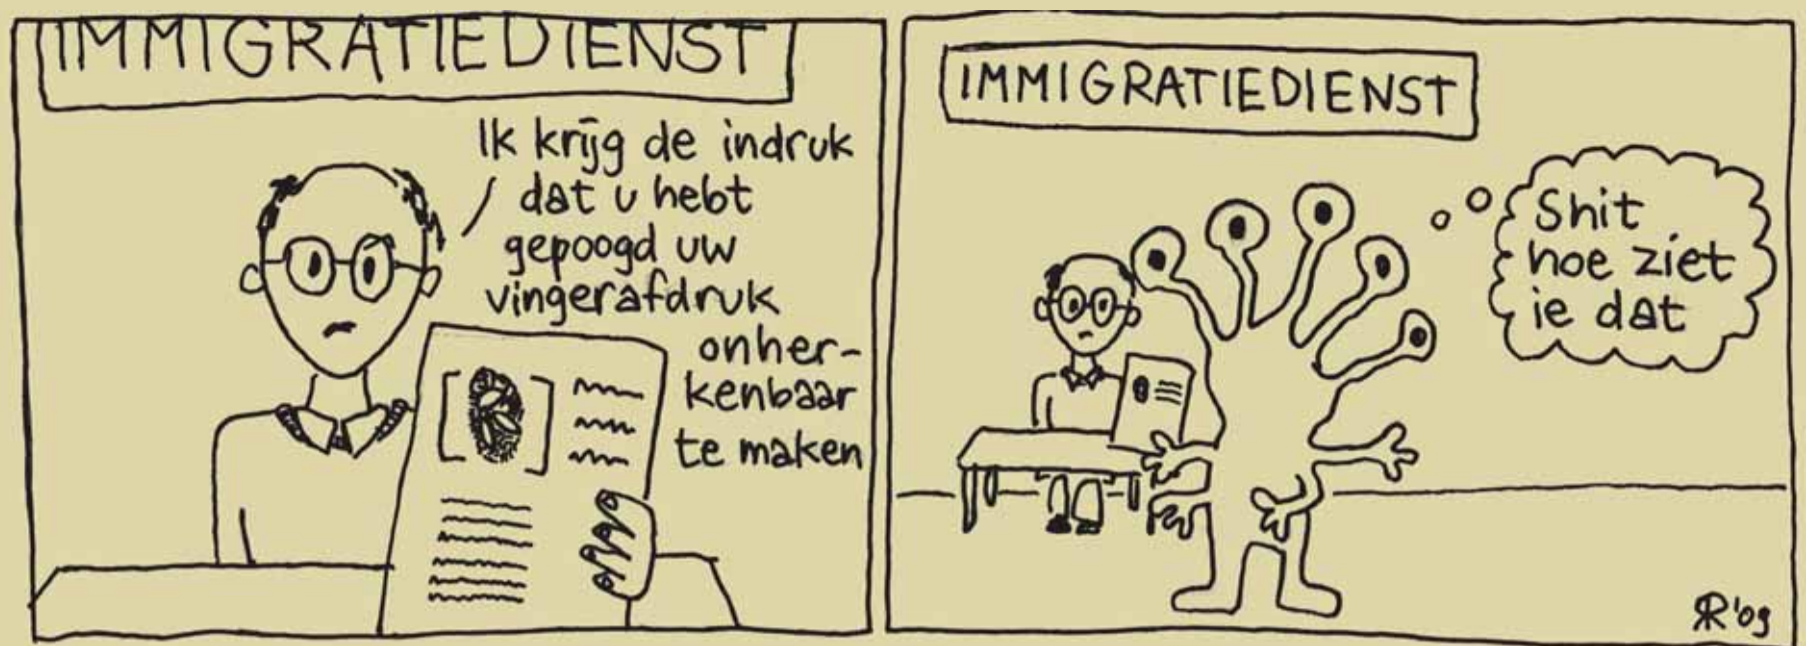 IMMIGRATIEDIENST
Ik krijg de indruk
dat u hebt
gepoogd uw
vingerafdruk
onher-
kenbaar
te maken
IMMIGRATIEDIENST
Shit
hoe ziet
ie dat
RR'09